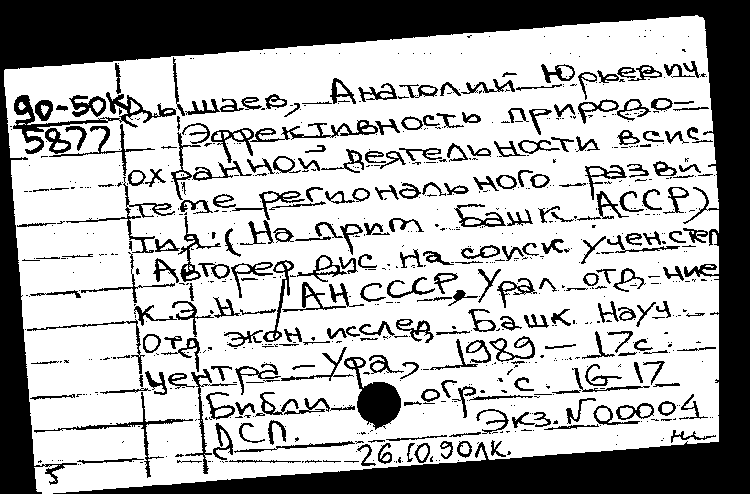 90-50К
5877
Дышаев, Анатолий Юрьевич.
Эффективность природо-
охранной деятельности в сис-
теме регионального разви-
тия: (На прим. Башк АССР)
Автореф дис. на соиск. учен. степ
к.э.н. / АН СССР, Урал. отд-ние
Отд. экон. исслед. Башк. Науч.
центра – Уфа, 1989. – 17с.
Библиогр.: с. 16-17
ДСП. Экз. N 00004
26.10.90 ЛК.
5